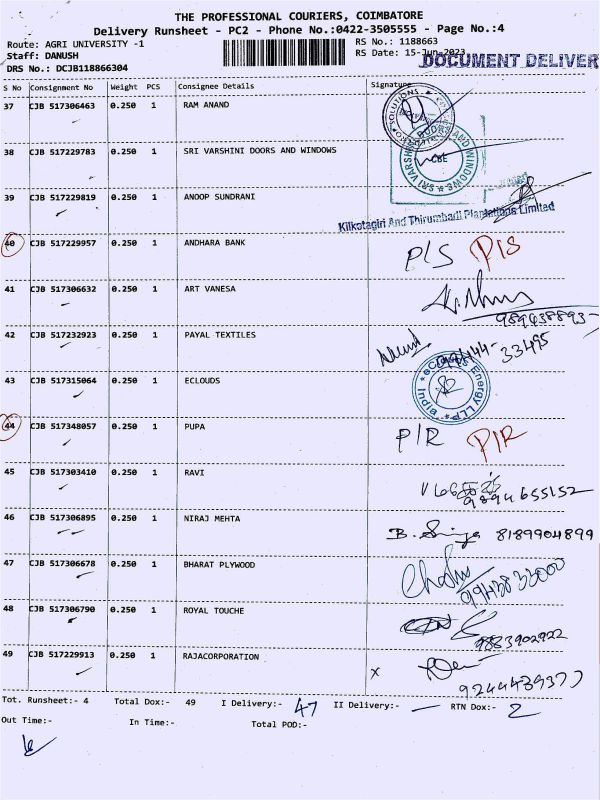 THE PROFESSIONAL COURIERS, COIMBATORE
Delivery Runsheet - PC2 - Phone No.:0422-3505555 - Page No.:4
Route: AGRI UNIVERSITY -1
RS No.: 1188663
Staff: DANUSH
RS Date: 15-Jun-2023
DOCUMENT DELIVER
DRS No.: DCJB118866304
S No Consignment No Weight PCS Consignee Details Signature
37 CJB 517306463 0.250 1 RAM ANAND
38 CJB 517229783 0.250 1 SRI VARSHINI DOORS AND WINDOWS
CBE
39 CJB 517229819 0.250 1 ANOOP SUNDRANI
Kilkotagiri And Thirumbadi Plantations Limited
40 CJB 517229957 0.250 1 ANDHARA BANK P/S P/S
41 CJB 517306632 0.250 1 ART VANESA
989438893
42 CJB 517232923 0.250 1 PAYAL TEXTILES
33495
43 CJB 517315064 0.250 1 ECLOUDS
eClouds Energy LLP India
44 CJB 517348057 0.250 1 PUPA P/R P/R
45 CJB 517303410 0.250 1 RAVI
9894 655152
46 CJB 517306895 0.250 1 NIRAJ MEHTA B. 8189904899
47 CJB 517306678 0.250 1 BHARAT PLYWOOD
48 CJB 517306790 0.250 1 ROYAL TOUCHE
9883902922
49 CJB 517229913 0.250 1 RAJACORPORATION X
Tot. Runsheet:- 4 Total Dox:- 49 I Delivery:- 47 II Delivery:- — RTN Dox:- 2
Out Time:- In Time:- Total POD:-